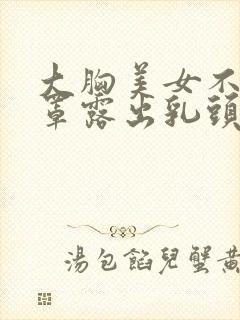 大胸美女不
罩露出乳頭
湯包餡兒蟹黃